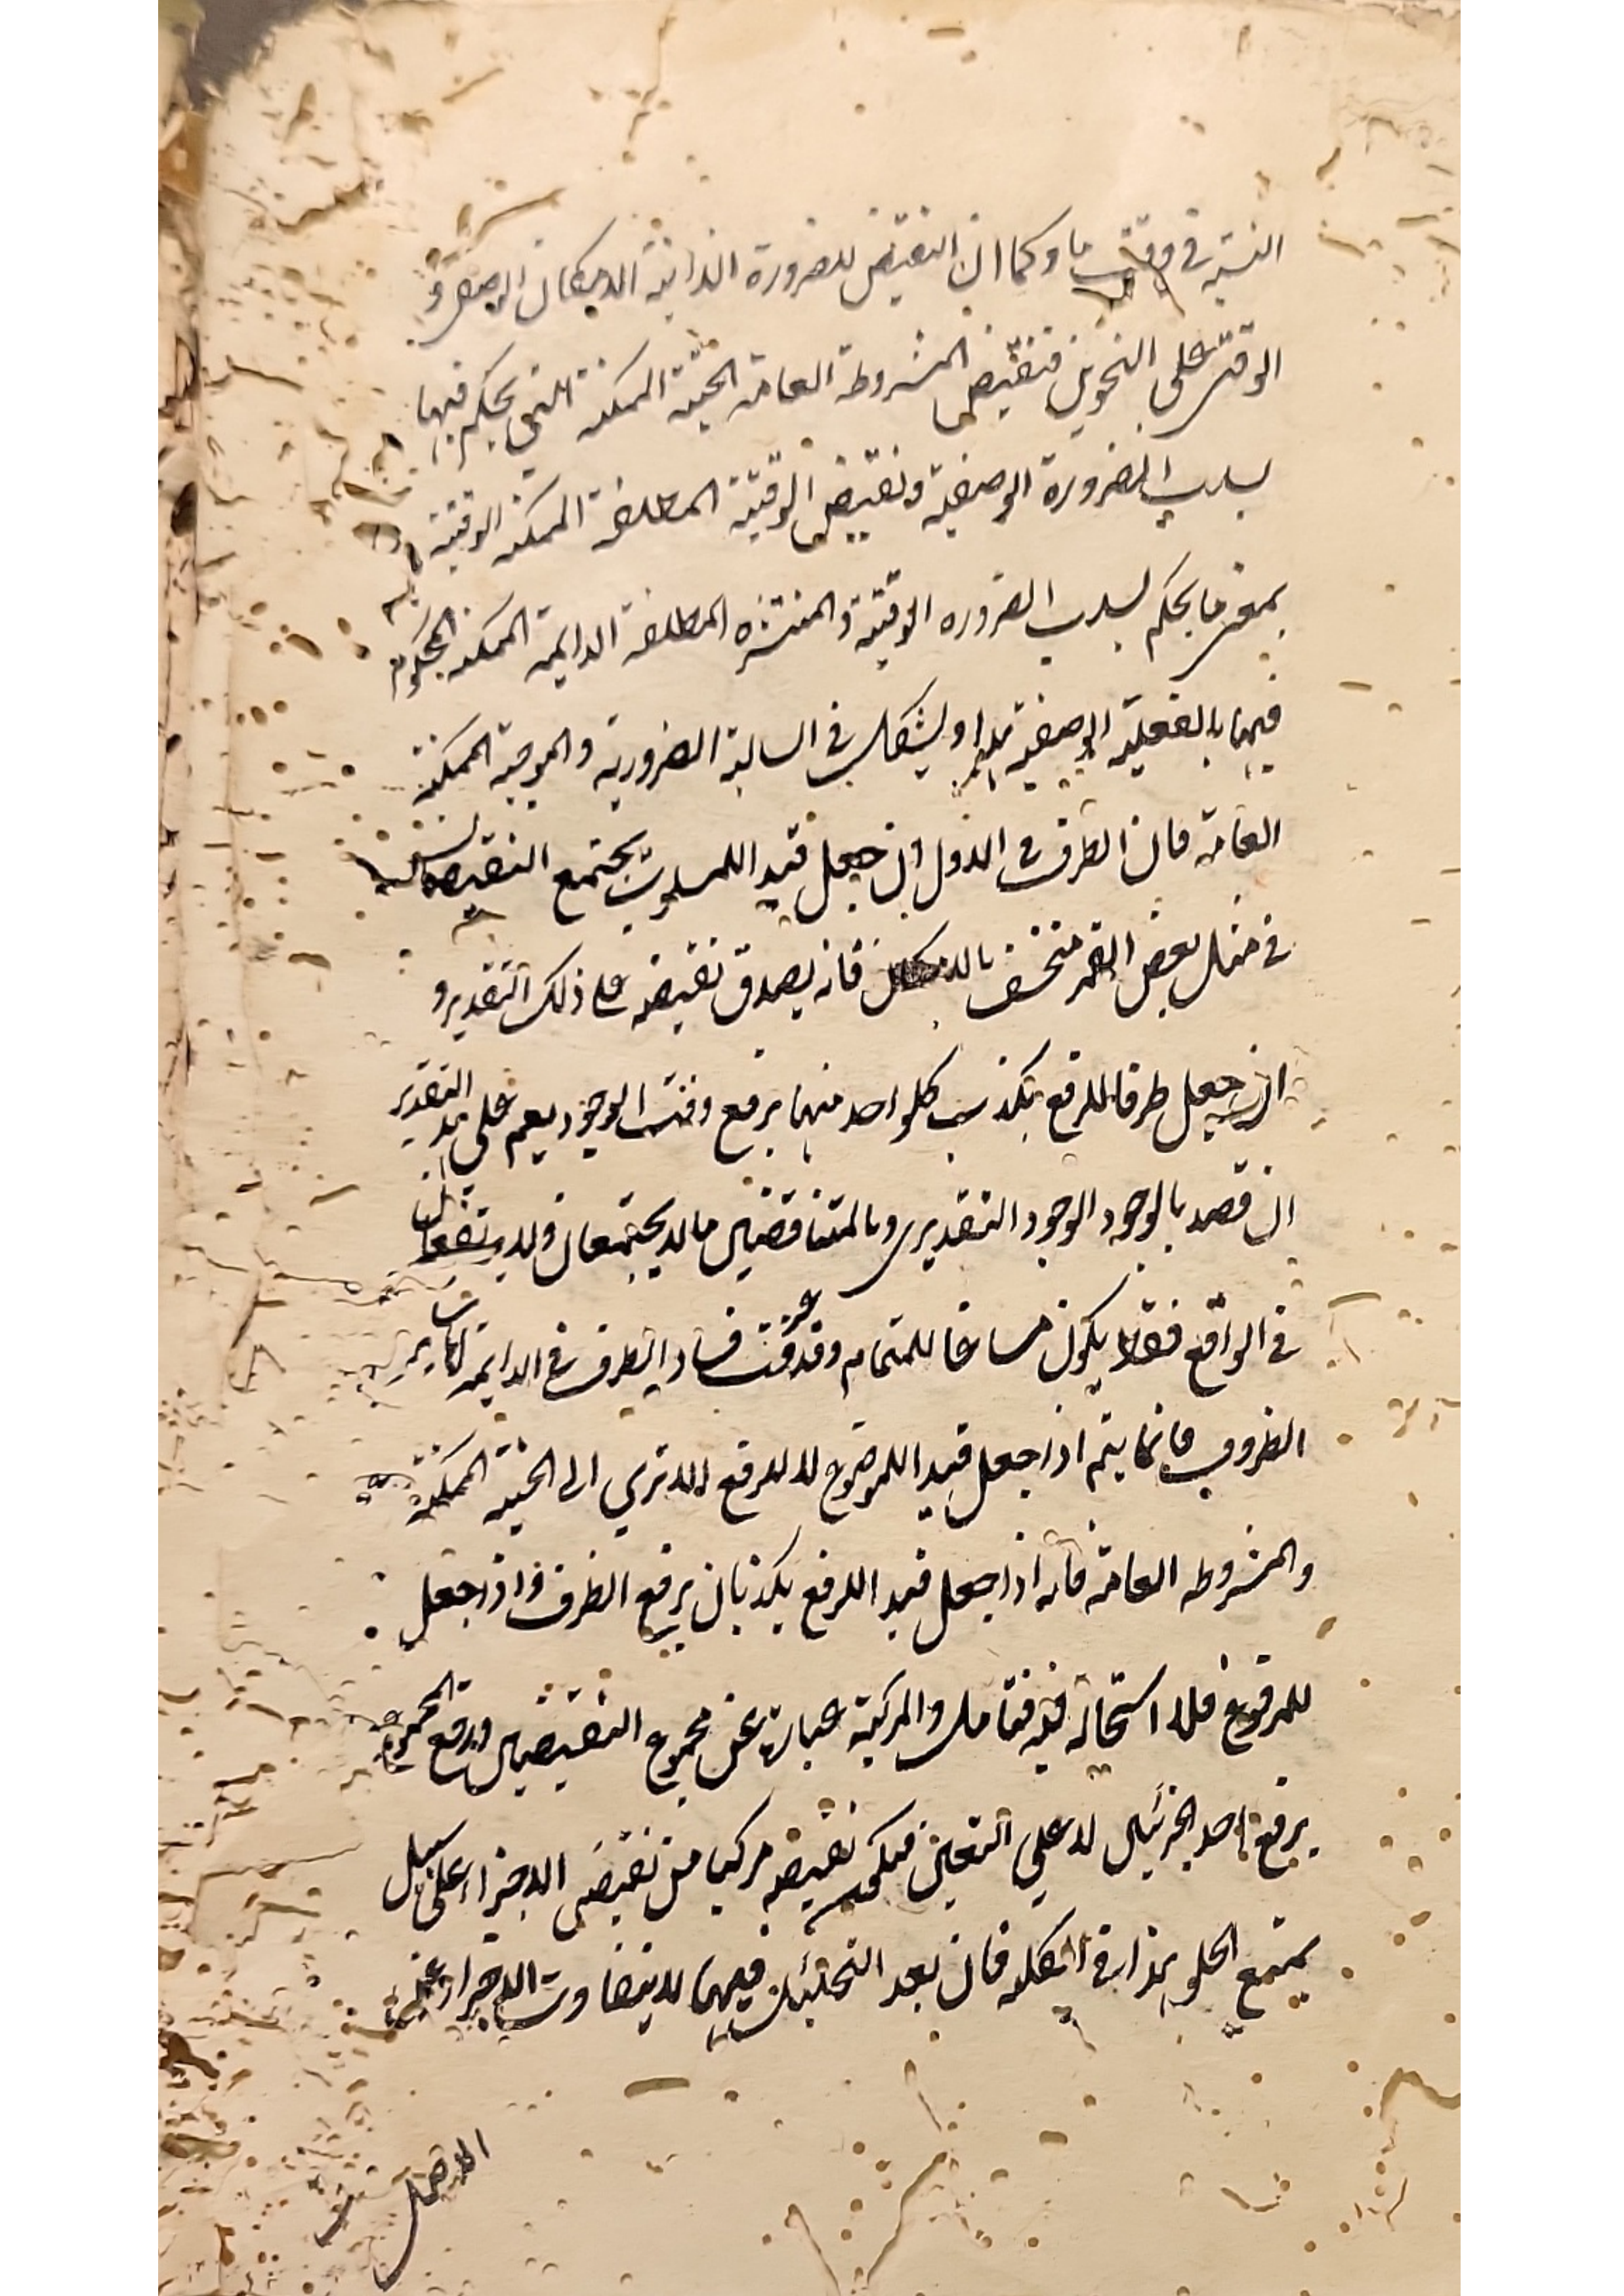 النسبة في وقت ما وكما ان النقيض للضرورة الذاتية الامكان الوصفي و
الوقتي على النحوين فنقيض المشروطة العامة الحينية الممكنة التي يحكم فيها
بسلب الضرورة الوصفية ونقيض الوقتية المطلقة الممكنة الوقتية
بمعنى ما يحكم بسلب الضرورة الوقتية والمنتشرة المطلقة الدايمة الممكنة المحكوم
فيها بالفعلية الوصفية ويشكل في السالبة الضرورية والموجبة الممكنة
العامة فان الظرف في الاول ان جعل قيدا للمسلوب يجتمع النقيضان
في مثل بعض القمر منخسف فانه يصدق نقيضه على ذلك التقدير و
ان جعل ظرفا للرفع يكذب كلواحد منهما برفع وقت الوجود نعم على هذا التقدير
ان قصد بالوجود الوجود التقديري وبالمتناقضين ما لا يجتمعان ولا يرتفعان
في الواقع فقط يكون مساغا للتمام وقد عرفت فساد الظرف في الدايمة
الظروف فانما يتم اذا جعل قيدا للموضوع لا للرفع الا ترى الى الحينية الممكنة
والمشروطة العامة فانه اذا جعل قيدا للرفع يكذبان برفع الظرف واذا جعل
للمرفوع فلا استحالة فيه فتامل والمركبة عبارة عن مجموع النقيضين ورفع المجموع
برفع احد الجزئين لا على التعيين فيكون نقيضه مركبا من نقيضي الاجزاء على سبيل
يمنع الخلو هذا في الكلية فان بعد التحليل فيها لا يتفاوت الاجزاء عن
الاصل